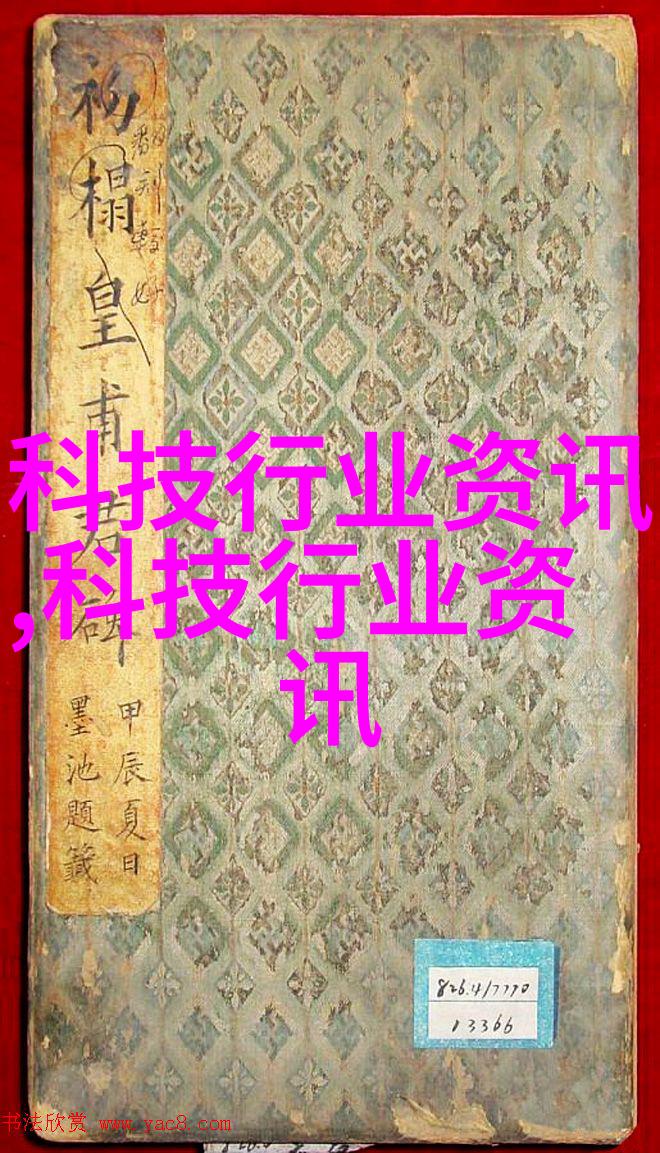 初榻皇甫君碑
翻刻較好
甲辰夏日
墨池題籤
科技行业资讯
,科技行业资
讯
826.4/7770
13366
书法欣赏 www.yac8.com